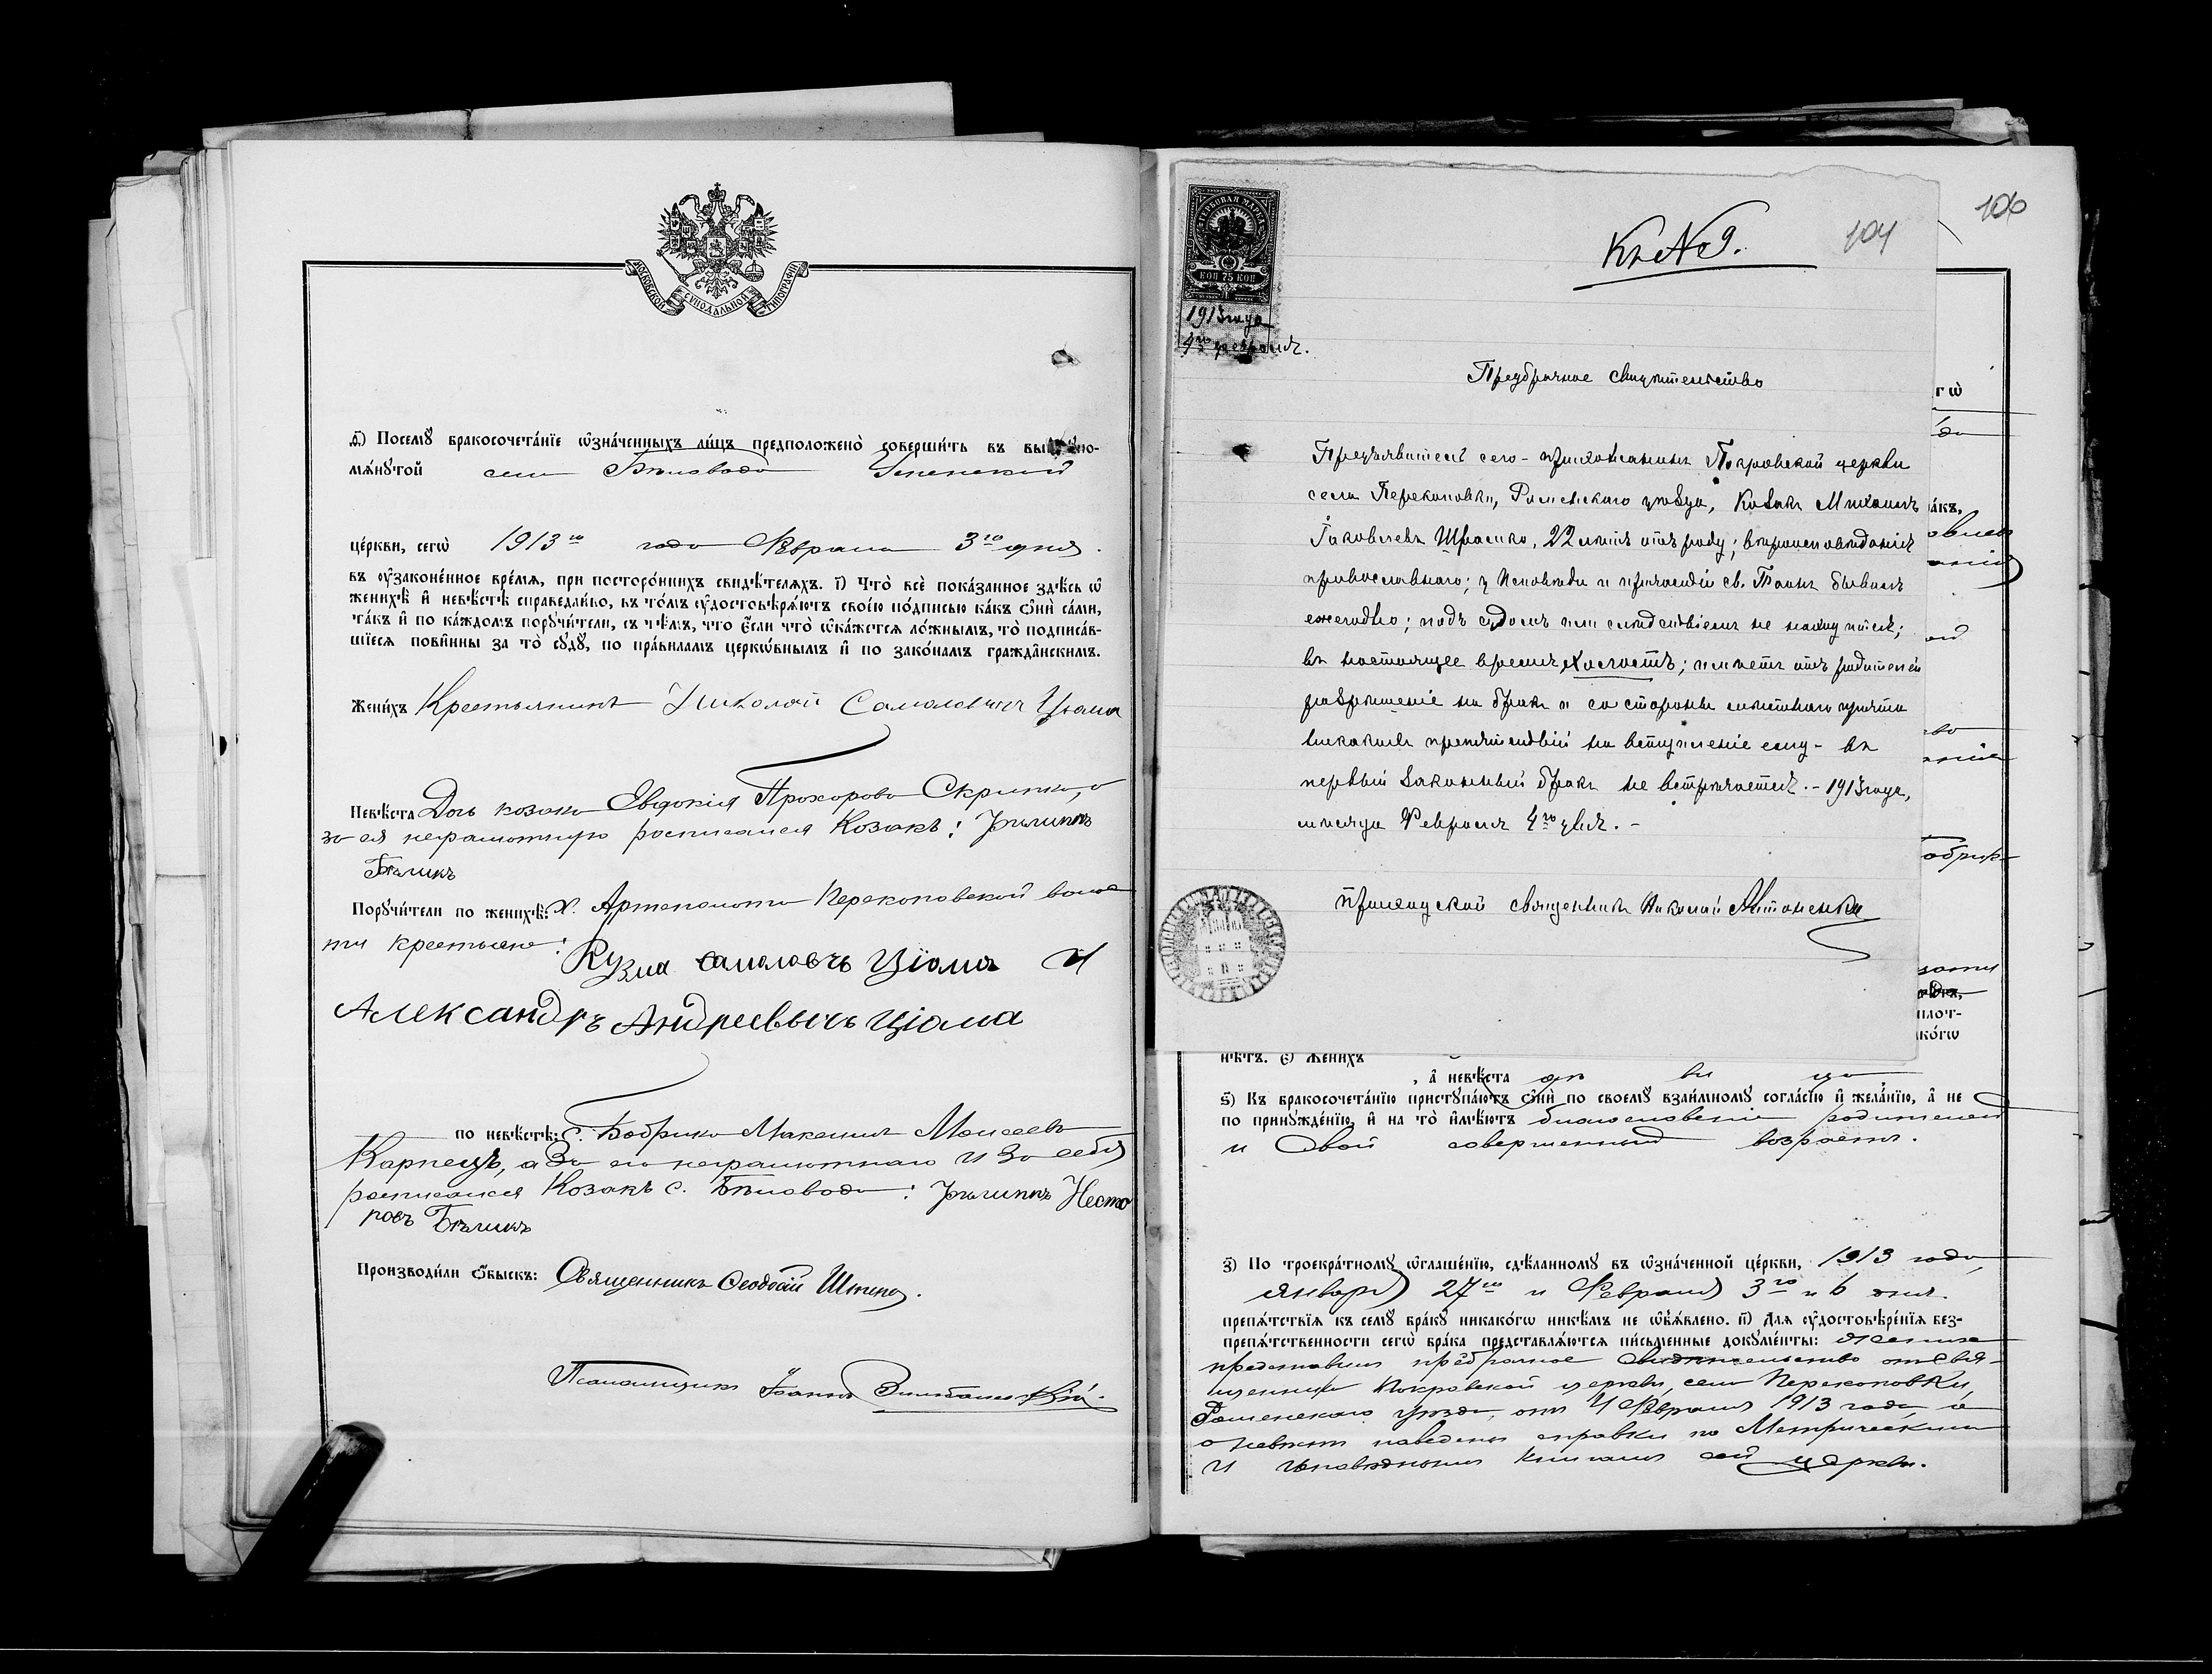 МОСКОВСКОЙ СУНОДАЛЬНОЙ ТИПОГРАФІИ
д҃) Посемꙋ̀ бракосочета́нїе ѡ҆зна́ченныхъ ли́цъ предположено̀ соверши́ть въ вы
мѧ́нꙋтой села Бѣловода Успенской
це́ркви, сегѡ̀ 1913го года Февраля 3го дня.
въ ᲂу҆законе́нное вре́мѧ, при посторо́ннихъ свидѣ́телѧхъ. і҃) Что̀ всѐ пока́занное здѣ́сь ѡ҆
женихѣ̀ и҆ невѣ́стѣ справедли́во, въ то́мъ ᲂу҆достовѣрѧ́ютъ свое́ю по́дписью ка́къ ѻ҆нѝ са́ми,
та́къ и҆ по ка́ждомъ порꙋчи́тели, съ тѣ́мъ, что є҆́сли что̀ ѡ҆ка́жетсѧ ло́жнымъ, то̀ подписа́в-
шїесѧ пови́нны за то̀ сꙋдꙋ̀, по пра́виламъ церко́внымъ и҆ по зако́намъ гражда́нскимъ.
Жени́хъ Крестьянинъ Николай Самойловичъ Цюма
Невѣ́ста Дочь козака Евдокія Прохорова Скрипка, а
за ея неграмотную росписался Козакъ: Филиппъ
Бѣликъ
Порꙋчи́тели по женихѣ̀: х. Артополота Перекоповской волос
ти крестьяне:
Кузма Самоловчъ Цїома И
Александръ Андреевычъ Цїома
по невѣ́стѣ: с. Бобрика Максимъ Моисеевъ
Карпецъ, а За его неграмотнаго И За себя
росписался Козакъ с. Бѣловода: Филиппъ Несто
ровъ Бѣликъ
Производи́ли ѻ҆́быскъ: Священникъ Феодосій
Псаломщикъ Іоаннъ
106
104
Къ № 9.
ГЕРБОВАЯ МАРКА
КОП 75 КОП
1913 года
4го февраля.
Предбрачное свидѣтельство
Предъявитель сего - прихожанинъ Покровской церкви
села Перекоповки, Роменскаго уѣзда, Козакъ Михаилъ
Іаковлевъ Шрамко, 22 лѣтъ отъ роду; вѣроисповѣданія
православнаго; у Исповѣди и причастія св. Таинъ бывалъ
ежегодно; подъ судомъ или слѣдствіемъ не находится;
въ настоящее время холостъ; имѣетъ отъ родителей
разрѣшеніе на бракъ и со стороны мѣстнаго причта
никакихъ препятствій на вступленіе ему - въ
первый законный бракъ не встрѣчается. - 1913 года,
мѣсяца Февраля 4го дня. -
Приходской священникъ Николай
гѡ̀
а́къ,
плот-
ко́гѡ
нѣ́тъ. є҃) Жени́хъ
, а҆ невѣ́ста дѣвица
ѕ҃) Къ бракосочета́нїю пристꙋпа́ютъ ѻ҆нѝ по своемꙋ̀ взаи́мномꙋ согла́сїю и҆ жела́нїю, а҆ не
по принꙋжде́нїю, и҆ на то̀ и҆мѣ́ютъ благословеніе родителей
и свой совершенный возрастъ.
з҃) По троекра́тномꙋ ѡ҆глаше́нїю, сдѣ́ланномꙋ въ ѡ҆зна́ченной це́ркви, 1913 года,
Января 27го и Февраля 3го и 6 дня.
препѧ́тствїѧ къ семꙋ̀ бра́кꙋ никако́гѡ никѣ́мъ не ѡ҆б̾ѧ́влено. и҃) Длѧ ᲂу҆достовѣре́нїѧ без-
препѧ́тственности сегѡ̀ бра́ка представлѧ́ютсѧ пи́сьменные докꙋме́нты: Женихъ
представилъ предбрачное свидѣтельство отъ Свя-
щенника Покровской церкви, села Перекоповки,
Роменскаго уѣзда, отъ 4 Февраля 1913 года, а
о невѣстѣ наведены справки по Метрическимъ
И исповѣднымъ книгамъ сей церкви.